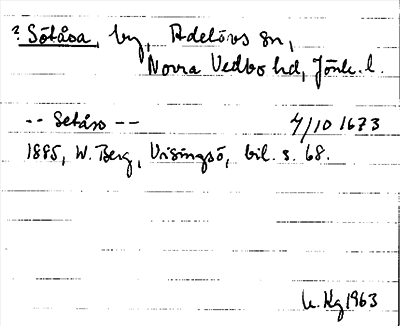 ? Sötåsa, by, Adelövs sn,
Norra Vedbo hd, Jönk. l.
-- Setåso -- 4/10 1673
1885, W. Berg, Visingsö, bil. s. 68.
1963